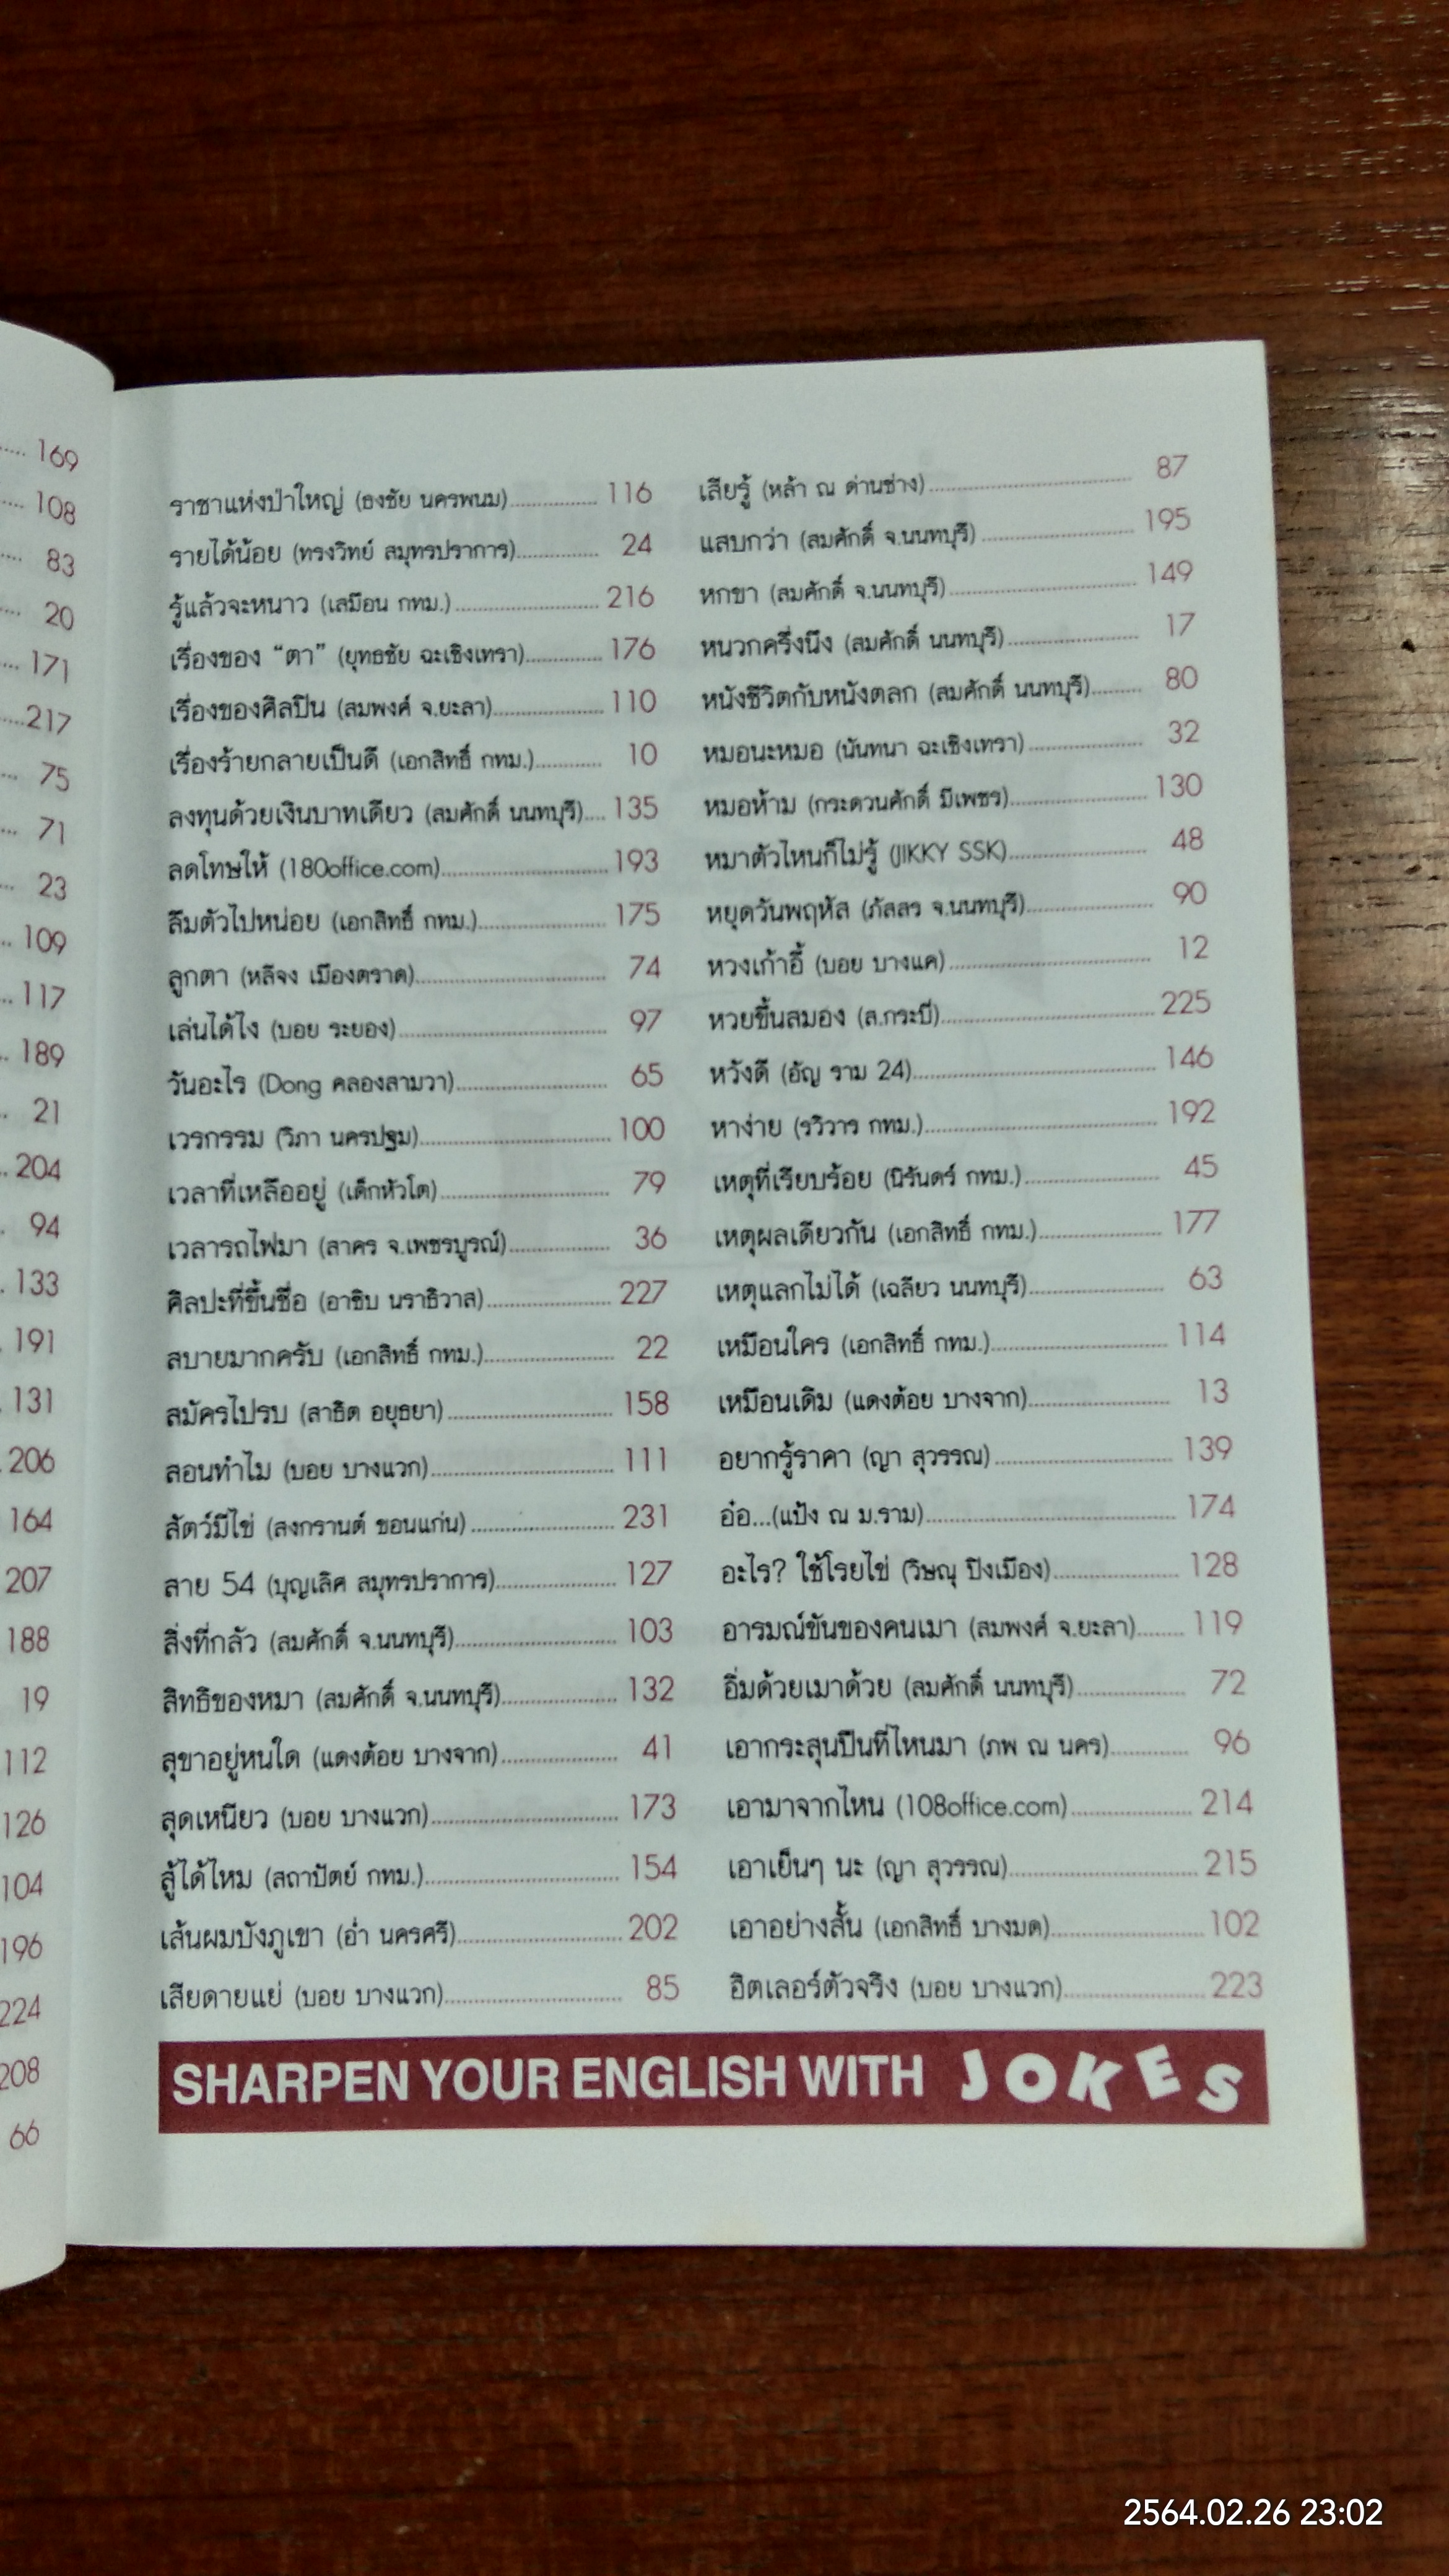 169
108
83
20
171
217
75
71
23
109
117
189
21
204
94
133
191
131
206
164
207
188
19
112
126
104
196
224
208
66
ราชาแห่งป่าใหญ่ (ธงชัย นครพนม) 116
รายได้น้อย (ทรงวิทย์ สมุทรปราการ) 24
รู้แล้วจะหนาว (เสมือน กทม.) 216
เรื่องของ “ตา” (ยุทธชัย ฉะเชิงเทรา) 176
เรื่องของศิลปิน (สมพงศ์ จ.ยะลา) 110
เรื่องร้ายกลายเป็นดี (เอกสิทธิ์ กทม.) 10
ลงทุนด้วยเงินบาทเดียว (สมศักดิ์ นนทบุรี) 135
ลดโทษให้ (180office.com) 193
ลืมตัวไปหน่อย (เอกสิทธิ์ กทม.) 175
ลูกตา (หลีจง เมืองตราด) 74
เล่นได้ไง (บอย ระยอง) 97
วันอะไร (Dong คลองสามวา) 65
เวรกรรม (วิภา นครปฐม) 100
เวลาที่เหลืออยู่ (เด็กหัวโต) 79
เวลารถไฟมา (สาคร จ.เพชรบูรณ์) 36
ศิลปะที่ขึ้นชื่อ (อาซิบ นราธิวาส) 227
สบายมากครับ (เอกสิทธิ์ กทม.) 22
สมัครไปรบ (สาธิต อยุธยา) 158
สอนทำไม (บอย บางแวก) 111
สัตว์มีไข่ (สงกรานต์ ขอนแก่น) 231
สาย 54 (บุญเลิศ สมุทรปราการ) 127
สิ่งที่กลัว (สมศักดิ์ จ.นนทบุรี) 103
สิทธิของหมา (สมศักดิ์ จ.นนทบุรี) 132
สุขาอยู่หนใด (แดงต้อย บางจาก) 41
สุดเหนียว (บอย บางแวก) 173
สู้ได้ไหม (สถาปัตย์ กทม.) 154
เส้นผมบังภูเขา (อ่ำ นครศรี) 202
เสียดายแย่ (บอย บางแวก) 85
เสียรู้ (หล้า ณ ด่านช่าง) 87
แสบกว่า (สมศักดิ์ จ.นนทบุรี) 195
หกขา (สมศักดิ์ จ.นนทบุรี) 149
หนวกครึ่งนึง (สมศักดิ์ นนทบุรี) 17
หนังชีวิตกับหนังตลก (สมศักดิ์ นนทบุรี) 80
หมอนะหมอ (นันทนา ฉะเชิงเทรา) 32
หมอห้าม (กระดวนศักดิ์ มีเพชร) 130
หมาตัวไหนก็ไม่รู้ (JIKKY SSK) 48
หยุดวันพฤหัส (ภัสสร จ.นนทบุรี) 90
หวงเก้าอี้ (บอย บางแค) 12
หวยขึ้นสมอง (ส.กระบี่) 225
หวังดี (อัญ ราม 24) 146
หาง่าย (รวิวาร กทม.) 192
เหตุที่เรียบร้อย (นิรันดร์ กทม.) 45
เหตุผลเดียวกัน (เอกสิทธิ์ กทม.) 177
เหตุแลกไม่ได้ (เฉลียว นนทบุรี) 63
เหมือนใคร (เอกสิทธิ์ กทม.) 114
เหมือนเดิม (แดงต้อย บางจาก) 13
อยากรู้ราคา (ญา สุวรรณ) 139
อ๋อ...(แป้ง ณ ม.ราม) 174
อะไร? ใช้โรยไข่ (วิษณุ ปิงเมือง) 128
อารมณ์ขันของคนเมา (สมพงศ์ จ.ยะลา) 119
อิ่มด้วยเมาด้วย (สมศักดิ์ นนทบุรี) 72
เอากระสุนปืนที่ไหนมา (ภพ ณ นคร) 96
เอามาจากไหน (108office.com) 214
เอาเย็นๆ นะ (ญา สุวรรณ) 215
เอาอย่างสั้น (เอกสิทธิ์ บางมด) 102
ฮิตเลอร์ตัวจริง (บอย บางแวก) 223
SHARPEN YOUR ENGLISH WITH JOKES
2564.02.26 23:02